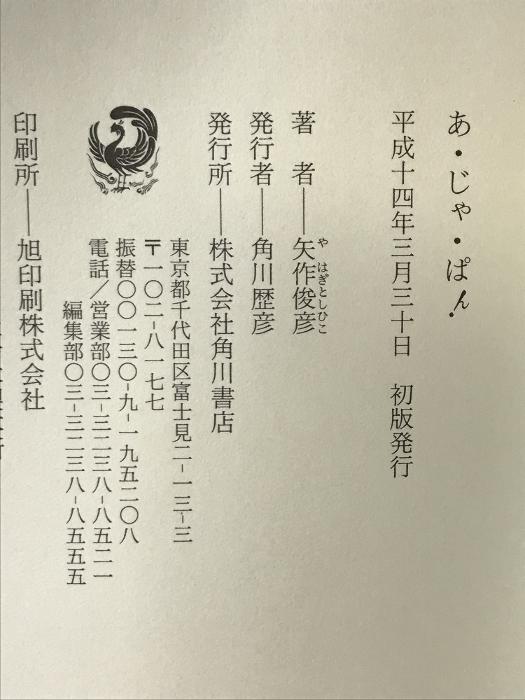 あ・じゃ・ぱん・
平成十四年三月三十日　初版発行
著　者――矢作俊彦
やはぎとしひこ
発行者――角川歴彦
発行所――株式会社角川書店
東京都千代田区富士見二-一三-三
〒一〇二-八一七七
振替〇〇一三〇-九-一九五二〇八
電話／営業部〇三-三二三八-八五二一
編集部〇三-三二三八-八五五五
印刷所――旭印刷株式会社